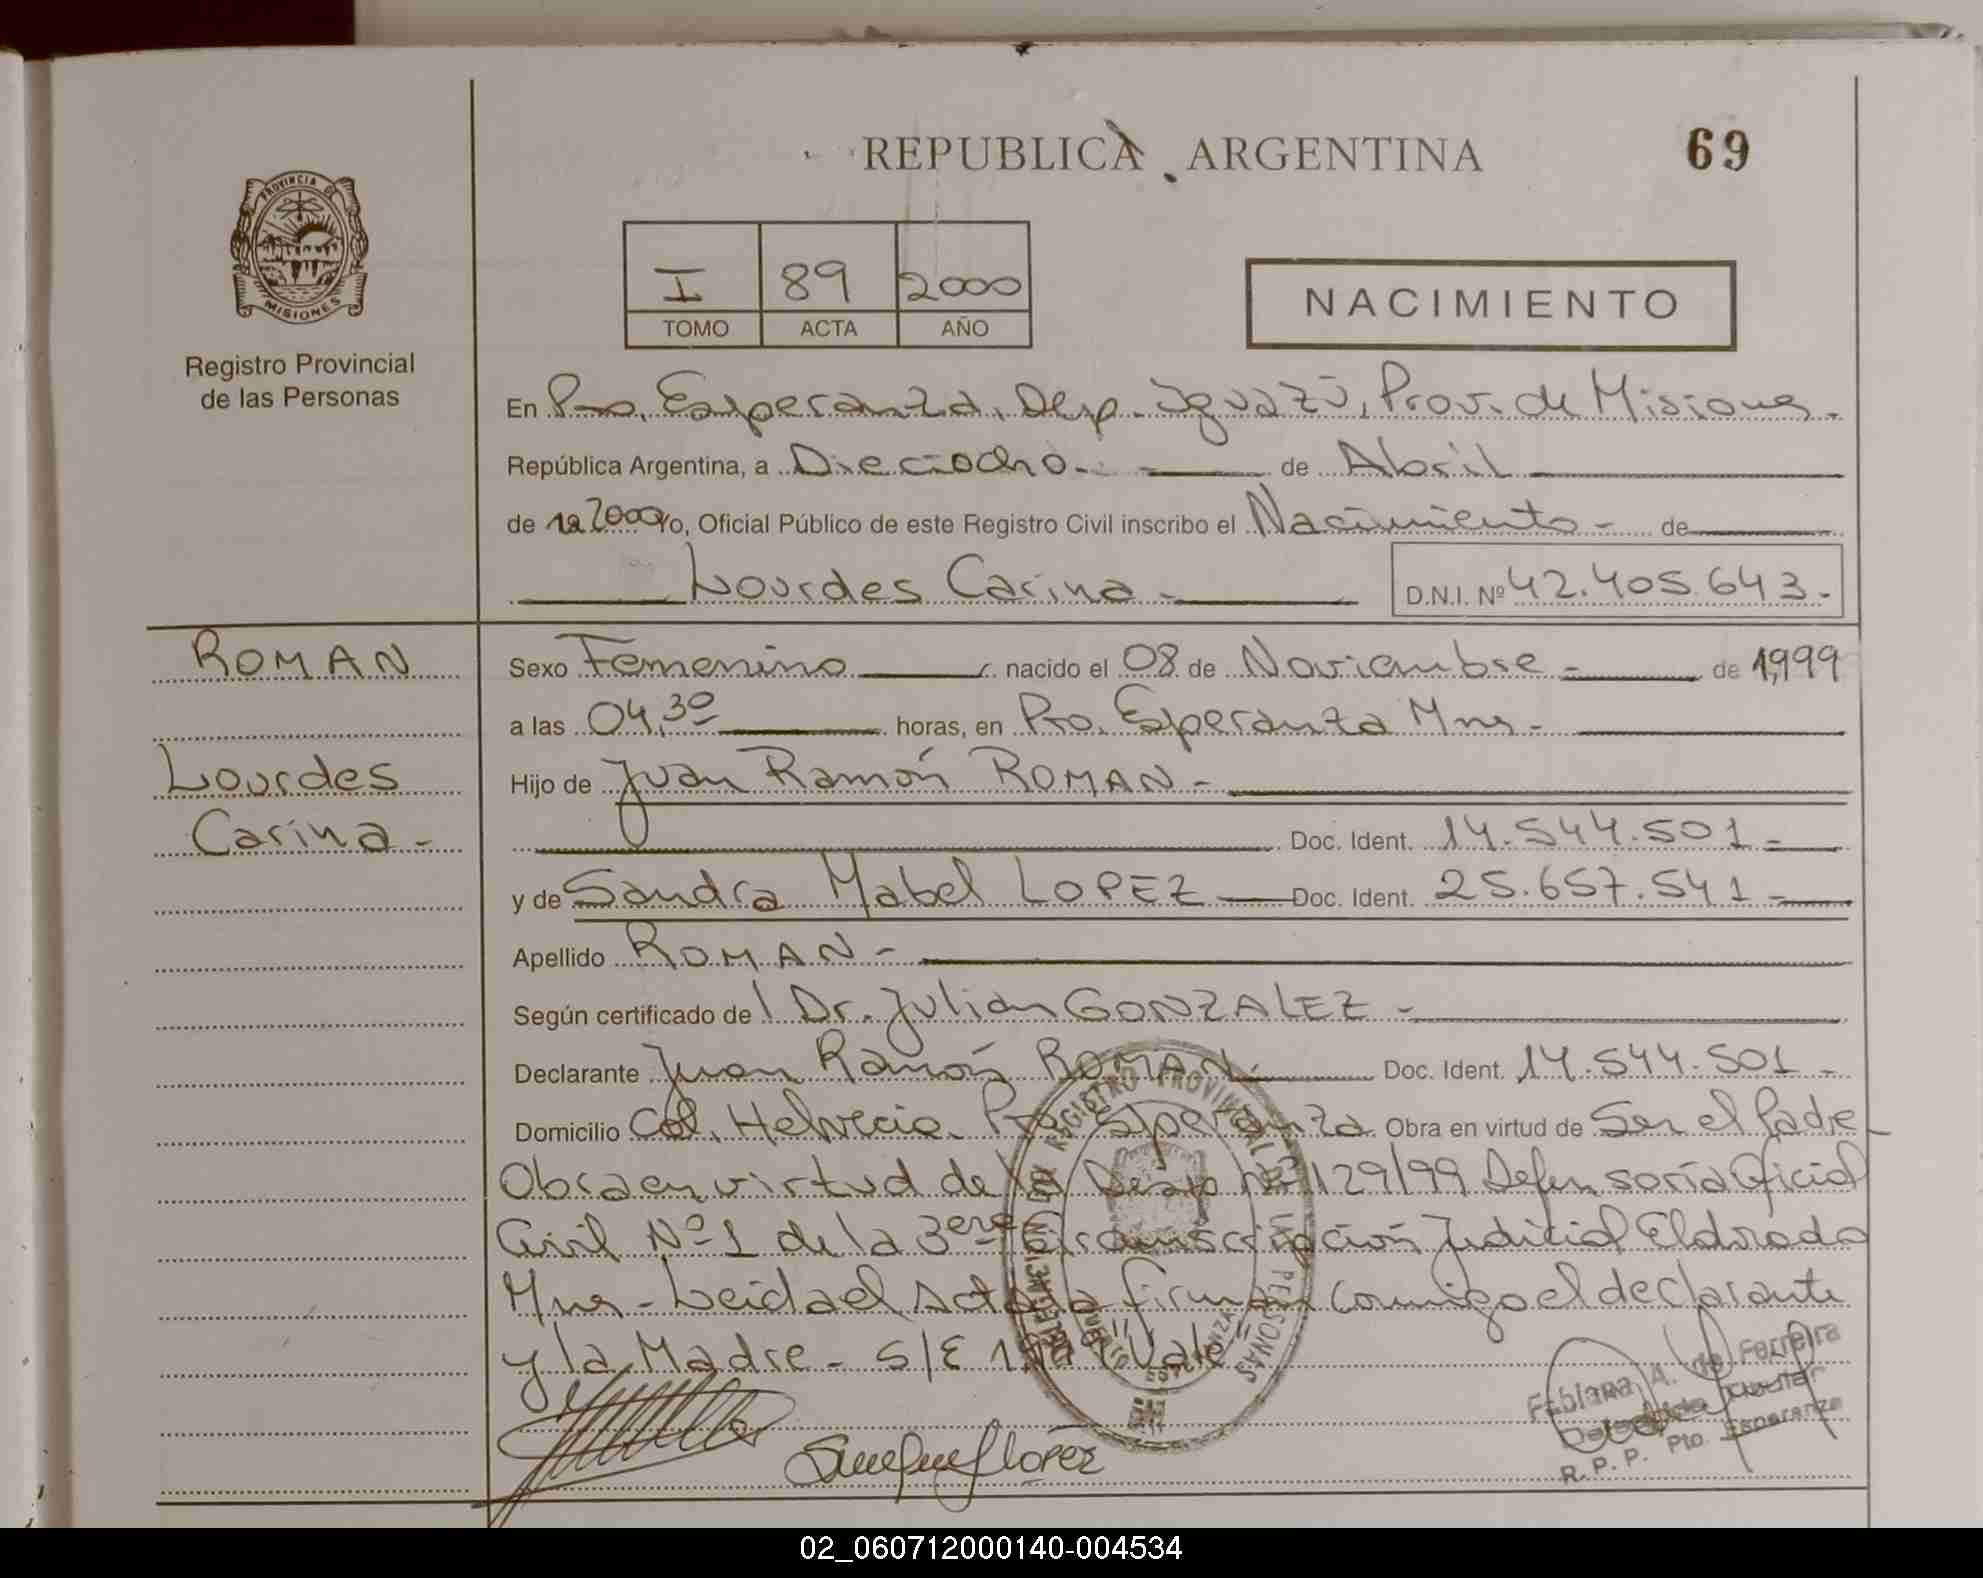 REPUBLICA ARGENTINA
69
PROVINCIA DE
MISIONES
Registro Provincial
de las Personas
I 89 2000
TOMO ACTA AÑO
NACIMIENTO
En Pto. Esperanza, Dep. Iguazú, Prov. de Misiones.
República Argentina, a Dieciocho.- de Abril
de 2000 Yo, Oficial Público de este Registro Civil inscribo el Nacimiento - de
Lourdes Carina - D.N.I. Nº 42.405.643.-
ROMAN
Lourdes
Carina -
Sexo Femenino nacido el 08 de Noviembre - de 1,999
a las 04,30 horas, en Pto. Esperanza Mnes-
Hijo de Juan Ramón ROMAN -
Doc. Ident. 14.544.501 -
y de Sandra Mabel LOPEZ Doc. Ident. 25.657.541 -
Apellido ROMAN -
Según certificado de Dr. Julian GONZALEZ -
Declarante Juan Ramón ROMAN - Doc. Ident. 14.544.501 -
Domicilio Col. Helvecia. Pto Esperanza Obra en virtud de Ser el Padre -
Obra en virtud de la Nº 129/99 Defensoría Oficial
Civil Nº 1 de la 3era Circunscripción Judicial Eldorado
Mnes - Leida el Acta la firman conmigo el declarante
y la Madre - S/E "Vale"
REGISTRO PROVINCIAL DE LAS PERSONAS
DELEGACION
PUERTO ESPERANZA
LOPEZ
Fabiana A. de Ferreira
Delegada Titular
R. P. P. Pto. Esperanza
02_060712000140-004534